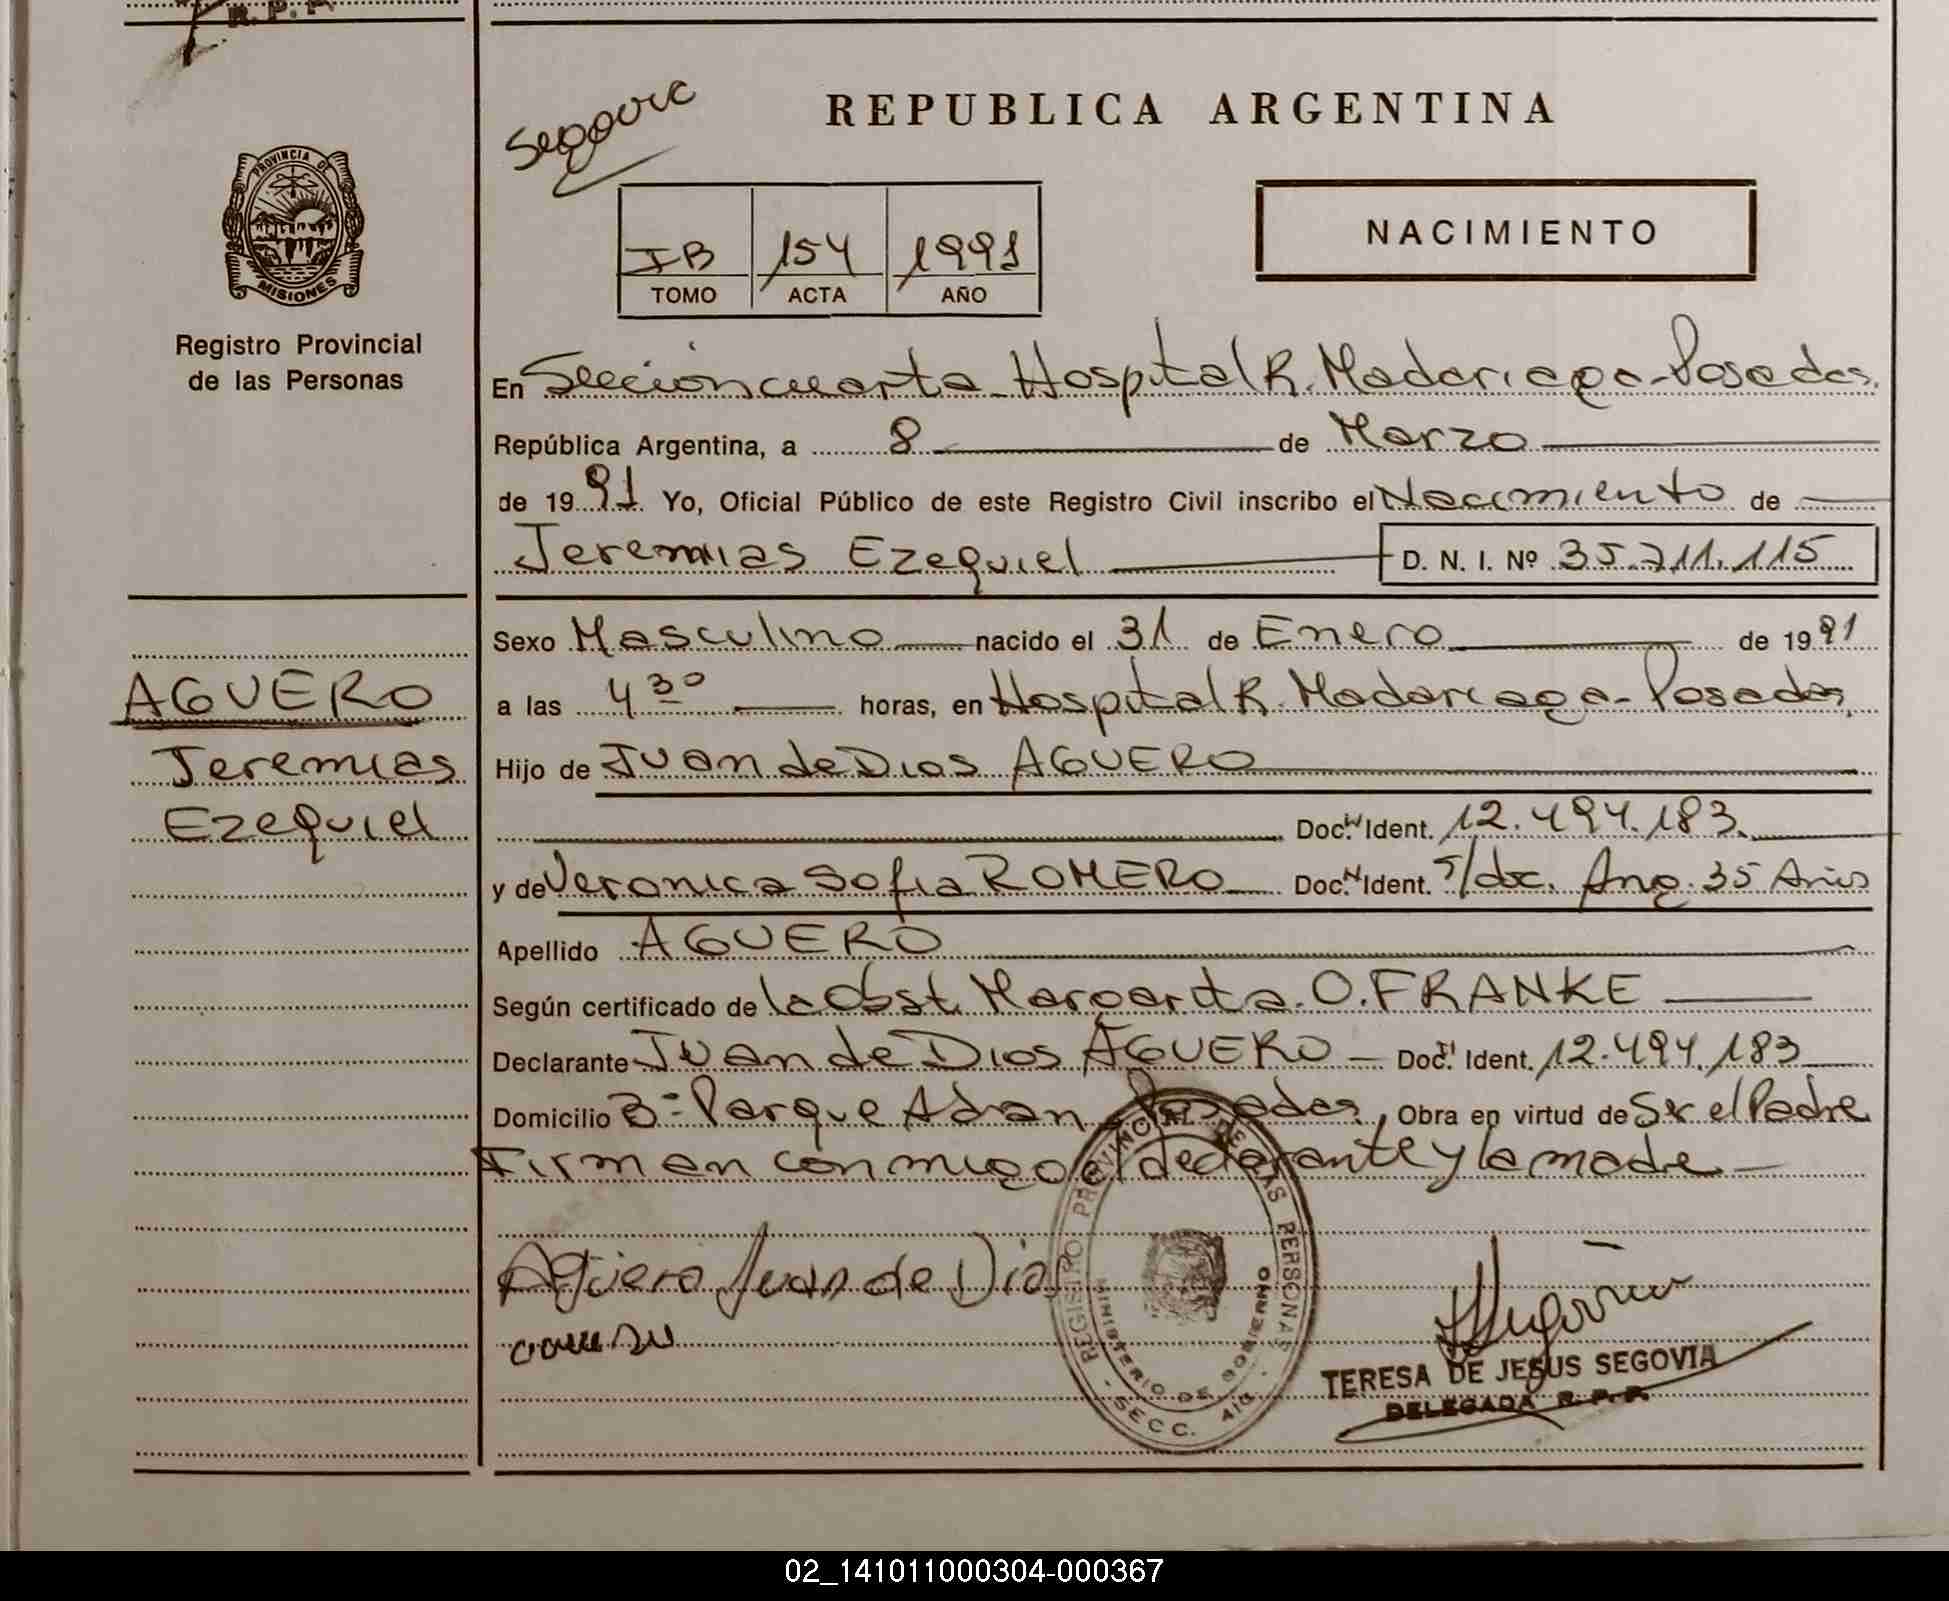 R. P. P.
PROVINCIA DE
MISIONES
Registro Provincial
de las Personas
AGUERO
Jeremias
Ezequiel
Segovia
REPUBLICA ARGENTINA
IB 154 1991
TOMO ACTA AÑO
NACIMIENTO
En Sección cuarta - Hospital R. Madariaga - Posadas.
República Argentina, a 8 de Marzo
de 1991 Yo, Oficial Público de este Registro Civil inscribo el Nacimiento de
Jeremias Ezequiel D. N. I. Nº 35.711.115
Sexo Masculino nacido el 31 de Enero de 1991
a las 4 30 horas, en Hospital R. Madariaga - Posadas.
Hijo de Juan de Dios AGUERO
Doc. Ident. 12.494.183.
y de Veronica Sofia ROMERO Doc. Ident. s/doc. Arg. 35 Años
Apellido AGUERO
Según certificado de la Obst. Margarita. O. FRANKE
Declarante Juan de Dios AGUERO - Doc. Ident. 12.494.183
Domicilio Bº Parque Adan Posadas, Obra en virtud de Ser el Padre
Firman conmigo el declarante y la madre
Agüero Juan de Dios
REGISTRO PROVINCIAL DE LAS PERSONAS
MINISTERIO DE GOBIERNO
- SECC. 4ta -
Segovia
TERESA DE JESUS SEGOVIA
DELEGADA R. P. P.
02_141011000304-000367